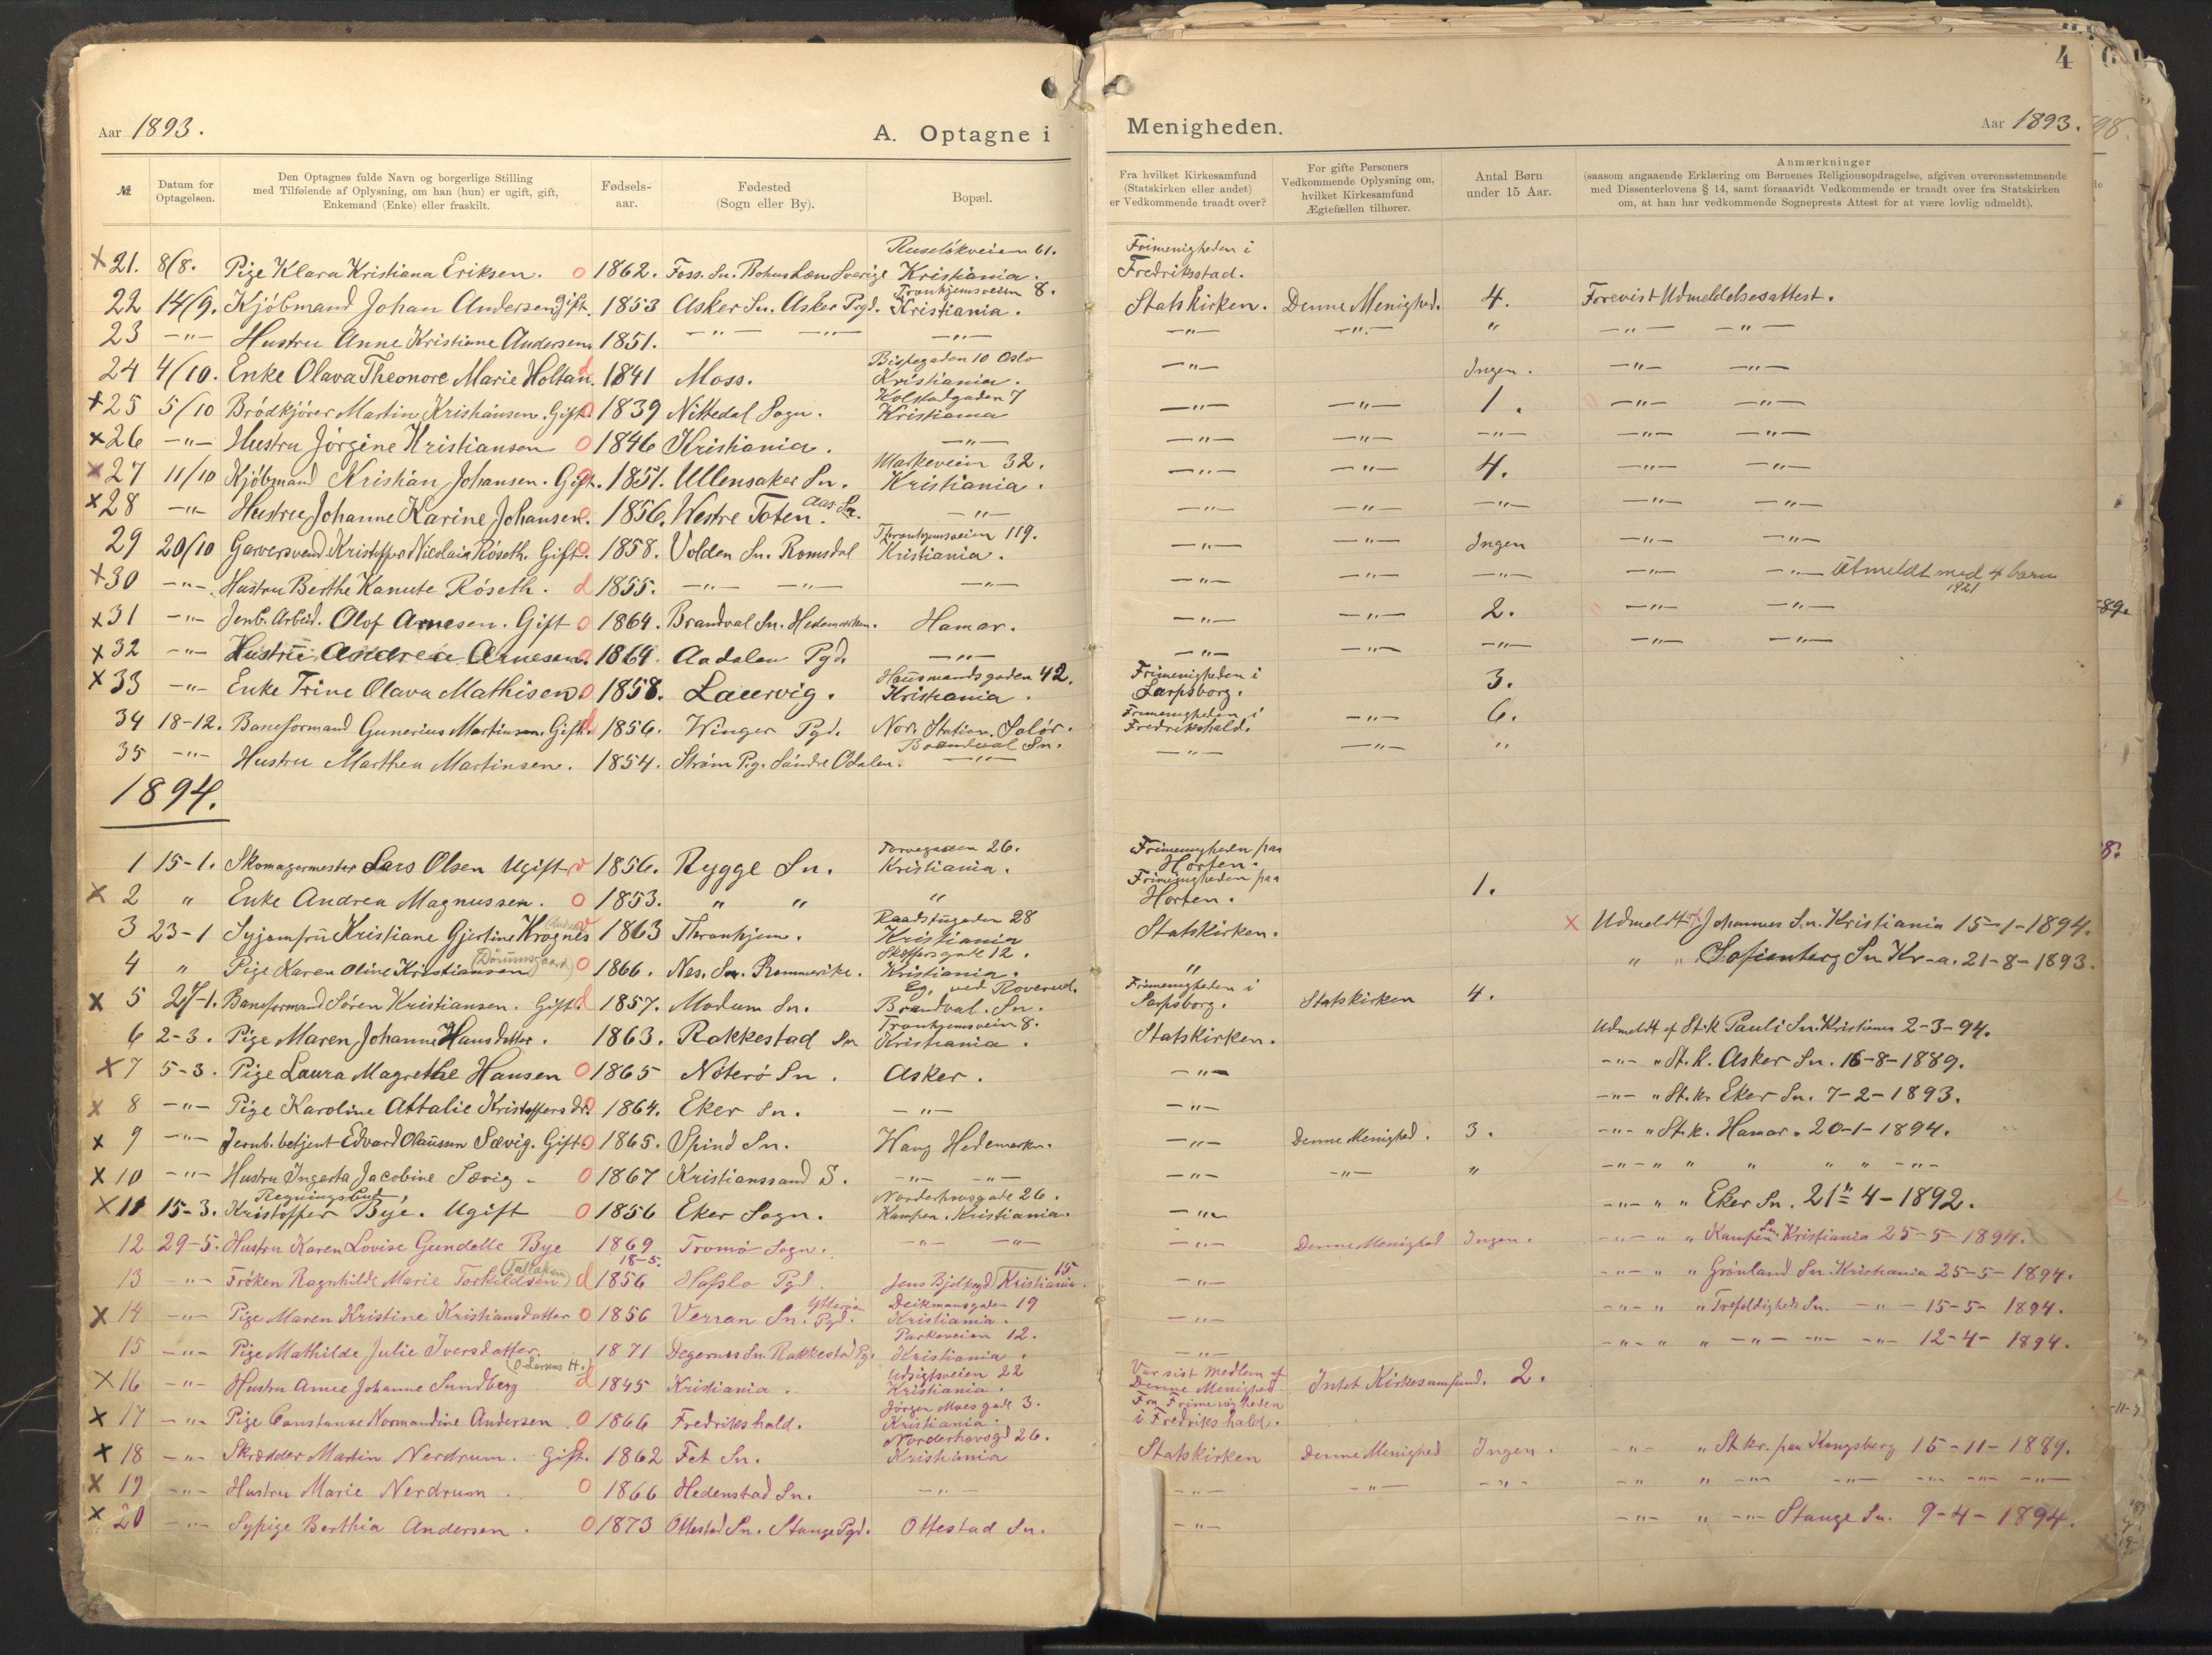 4
Aar 1893.
A. Optagne i Menigheden.
Aar 1893.
№
Datum for Optagelsen.
Den Optagnes fulde Navn og borgerlige Stilling med Tilføiende af Oplysning, om han (hun) er ugift, gift, Enkemand (Enke) eller fraskilt.
Fødselsaar.
Fødested (Sogn eller By).
Bopæl.
Fra hvilket Kirkesamfund (Statskirken eller andet) er Vedkommende traadt over?
For gifte Personers Vedkommende Oplysning om, hvilket Kirkesamfund Ægtefællen tilhører.
Antal Børn under 15 Aar.
Anmærkninger
(saasom angaaende Erklæring om Børnenes Religionsopdragelse, afgiven overensstemmende med Dissenterlovens § 14, samt forsaavidt Vedkommende er traadt over fra Statskirken om, at han har vedkommende Sogneprests Attest for at være lovlig udmeldt).
x 21. 8/8. Pige Klara Kristiana Eriksen. o 1862. Foss. Sn. Bohus Læn Sverige Ruseløkveien 61. Kristiania. Frimenigheden i Fredriksstad.
22 14/9. Kjöbmand Johan Andersen gift. 1853 Asker Sn. Asker Prgd. Tronhjemsveien 8. Kristiania. Statskirken. Denne Menighed. 4. Forevist Udmeldelsesattest.
23 -"- Hustru Anne Kristiane Andersen. 1851. -"- -"- -"- -"- -"- " -"- -"-
24 4/10. Enke Olava Theonore Marie Holtan. d 1841 Moss. Bispegaden 10 Oslo Kristiania. -"- Ingen. -"- -"-
x 25 5/10 Brödkjører Martin Kristiansen. Gift. o 1839 Nittedal Sogn. Kolstadgaden 7 Kristiania -"- -"- 1. -"- -"-
x 26 -"- Hustru Jörgine Kristiansen o 1846 Kristiania. -"- -"- -"- -"- -"- -"-
x 27 11/10 Kjöbmand Kristian Johansen. Gift. o 1851. Ullensaker Sn. Markeveien 32. Kristiania. -"- -"- 4. -"- -"-
x 28 -"- Hustru Johanne Karine Johansen. o 1856. Westre Toten. Aas Sn. -"- -"- -"- -"- -"- -"-
29 20/10 Garversvend Kristoffer Nicolaia Röseth. Gift. o 1858. Volden Sn. Romsdal Thronhjemsveien 119. Kristiania. -"- -"- Ingen -"- -"-
x 30 -"- Hustru Berthe Kanute Röseth. d 1855. -"- -"- -"- -"- -"- -"- -"- -"- Utmeldt med 4 barn 1921
x 31 -"- Jenb. Arbeid. Olof Arnesen. Gift o 1864. Brandval Sn. Hedemarken. Hamar. -"- -"- 2. -"- -"-
x 32 -"- Hustru Andrea Arnesen. o 1869. Aadalen Pgd. -"- -"- -"- -"- -"- -"-
x 33 -"- Enke Trine Olava Mathisen o 1858. Laurvig. Hausmandsgaden 42. Kristiania. Frimenigheden i Sarpsborg. 3.
34 18-12. Baneformand Gunerius Martinsen. Gift. d 1856. Winger Pgd. Nor. Station. Solör. Brandval Sn. Frimenigheden i Fredrikshald. -"- 6.
35 -"- Hustru Marthea Martinsen. 1854. Ström Pg. Söndre Odalen. -"- -"- -"- "
1894.
1 15-1. Skomagermester Lars Olsen Ugift 1856. Rygge Sn. Torvegaden 26. Kristiania. Frimenigheden paa Horten.
x 2 " Enke Andrea Magnussen. o 1853. " " " Frimenigheden paa Horten. 1.
3 23-1 Syjomfru Kristiane Gjertine Krognes 1863 Thronhjem. Raadstugaden 28 Kristiania Statskirken. x Udmeldt af Johannes Sn. Kristiania 15-1-1894.
4 " Pige Karen Oline Kristiansen (Dörumsgaard) o 1866. Nes. Sn. Romerike. Skippergade 12. Kristiania. " " " Sofienberg Sn. Kr-a. 21-8-1893.
x 5 27-1. Baneformand Sören Kristiansen. Gift. d 1857. Modum Sn. Eg, ved Roverud. Brandval. Sn. Frimenigheden i Sarpsborg. Statskirken 4.
6 2-3. Pige Maren Johanne Hansdatter. 1863. Rakkestad Sn Tronhjemsvein 8. Kristiania. Statskirken. Udmeldt af St.k Pauli Sn. Kristiania 2-3-94.
x 7 5-3. Pige Laura Magrethe Hansen o 1865 Nöterö Sn. Asker. -"- -"- " St. k. Asker Sn. 16-8-1889.
x 8 -"- Pige Karoline Attalie Kristoffersdr. o 1864. Eker Sn. -"- -"- -"- " St. kr. Eker Sn. 7-2-1893.
x 9 -"- Jernb. betjent Edvard Olaussen Sævig. Gift. o 1865. Spind Sn. Wang Hedemarken. -"- Denne Menighed. 3. -"- " St. k. Hamar. 20-1-1894.
x 10 -"- Hustru Ingerta Jacobine Sævig - o 1867 Kristianssand S. -"- -"- -"- -"- " -"- " " " " " -"-
x 11 15-3. Regningsbud, Kristoffer Bye. Ugift o 1856 Eker Sogn. Norderhovsgate 26. Kampen. Kristiania. -"- -"- " " Eker Sn. 21" 4-1892.
12 29-5. Hustru Karen Lovise Gundelle Bye 1869 18-5. Tromö Sogn. -"- -"- -"- Denne Menighed Ingen. -"- " " Kampen Sn. Kristiania 25-5-1894.
13 -"- Fröken Ragnhilde Marie Torkildsen d 1856 Hafslo Pgd. Jens Bjelkegd 15 Kristiania. -"- -"- " " Grönland Sn. Kristiania 25-5-1894.
x 14 -"- Pige Maren Kristine Kristiansdatter o 1856 Verran Sn. Ytterøn Pgd. Deikmansgaden 19 Kristiania. -"- -"- " " Trefoldigheds Sn. -"- 15-5-1894.
15 -"- Pige Mathilde Julie Iversdatter. 1871 Degernes Sn. Rakkestad Pg. Parkveien 12. Kristiania. -"- -"- " " -"- -"- -"- 12-4-1894.
x 16 -"- Hustru Anne Johanne Sundberg (O. Larsens H.) d 1845 Kristiania. Udsigtsveien 22 Kristiania. Var sist Medlem af Denne Menighed. Intet Kirkesamfund. 2.
x 17 -"- Pige Constanse Normandine Andersen. o 1866 Fredrikshald. Jörgen Moes gate 3. Kristiania. Fra Frimenigheden i Fredrikshald.
x 18 -"- Skrædder Martin Nerdrum. Gift. o 1862 Fet Sn. Norderhovsgd 26. Kristiania Statskirken Denne Menighed Ingen. -"- " St.kr. paa Kongsberg 15-11-1889.
x 19 -"- Hustru Marie Nerdrum. o 1866 Hedenstad Sn. -"- -"- -"- -"- -" " -"- -"- -"- -"- -"-
x 20 -"- Sypige Berthia Andersen. o 1873 Ottestad Sn. Stange Pgd. Ottestad Sn. -"- -"- " -"- Stange Sn. 9-4-1894.